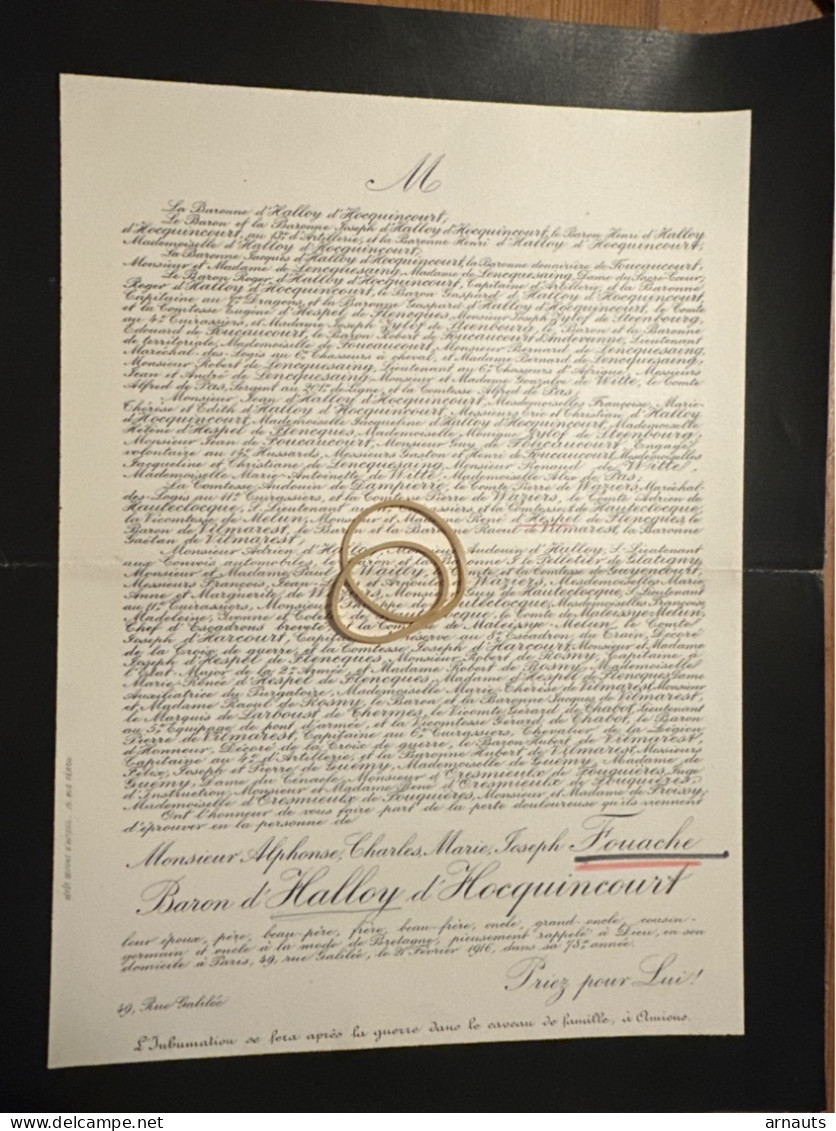 M
La Baronne d'Halloy d'Hocquincourt,
Le Baron et la Baronne Joseph d'Halloy d'Hocquincourt, le Baron Henri d'Halloy
d'Hocquincourt, au 13e d'Artillerie, et la Baronne Henri d'Halloy d'Hocquincourt,
Mademoiselle d'Halloy d'Hocquincourt,
La Baronne Jacques d'Halloy d'Hocquincourt, la Baronne douairière de Foucaucourt,
Monsieur et Madame de Lencquesaing, Madame de Lencquesaing, Dame du Sacré-Coeur,
Le Baron Roger d'Halloy d'Hocquincourt, Capitaine d'Artillerie, et la Baronne
Roger d'Halloy d'Hocquincourt, le Baron Gaspard d'Halloy d'Hocquincourt,
Capitaine au Dragons, et la Baronne Gaspard d'Halloy d'Hocquincourt, le Comte
et la Comtesse Eugène d'Hespel de Flencques, Monsieur Joseph Zylof de Steenbourg,
au 4e Cuirassiers, et Madame Joseph Zylof de Steenbourg, le Baron et la Baronne
Edouard de Foucaucourt, le Baron Robert de Foucaucourt d'Andevanne, Lieutenant
de territoriale, Mademoiselle de Foucaucourt, Monsieur Bernard de Lencquesaing,
Maréchal-des-Logis au 6e Chasseurs à cheval, et Madame Bernard de Lencquesaing,
Monsieur Robert de Lencquesaing, Lieutenant au 6e Chasseurs d'Afrique, Messieurs
Jean et André de Lencquesaing, Monsieur et Madame Gonzalve de Witte, le Comte
Alfred de Pas, Sergent au de Ligne, et la Comtesse Alfred de Pas,
Monsieur Jean d'Halloy d'Hocquincourt, Mesdemoiselles Françoise, Marie-
Thérèse et Edith d'Halloy d'Hocquincourt, Messieurs Eric et Christian d'Halloy
d'Hocquincourt, Mademoiselle Jacqueline d'Halloy d'Hocquincourt, Mademoiselle
Hélène d'Hespel de Flencques, Mademoiselle Monique Zylof de Steenbourg,
Monsieur Jean de Foucaucourt, Monsieur Guy de Foucaucourt, Engagé
volontaire au 14e Hussards, Messieurs Gaston et Henri de Foucaucourt, Mesdemoiselles
Jacqueline et Christiane de Lencquesaing, Monsieur Renaud de Witte,
Mademoiselle Marie-Antoinette de Witte, Mademoiselle de Pas,
La Comtesse Audouin de Dampierre, le Comte Pierre de Waziers, Maréchal-
des-Logis au 11e Cuirassiers, et la Comtesse Pierre de Waziers, le Comte Adrien de
Hauteclocque, S. Lieutenant au Cuirassiers, et la Comtesse de Hauteclocque,
la Vicomtesse de Melun, Monsieur et Madame René d'Hespel de Flencques, le
Baron de Vilmarest, le Baron et la Baronne Raoul de Vilmarest, la Baronne
Gaëtan de Vilmarest,
Monsieur Adrien d'Halloy, Monsieur Audouin d'Halloy, S. Lieutenant
aux Convois automobiles, le Baron et la Baronne J. le Pelletier de Glatigny,
Monsieur et Madame Paul de Wailly, le Comte et la Comtesse de Guyencourt,
Messieurs François, Jean, et de Waziers, Mesdemoiselles Marie
Anne et Marguerite de Waziers, Monsieur Guy de Hauteclocque, S. Lieutenant
au 11e Cuirassiers, Monsieur Philippe de Hauteclocque, Mesdemoiselles Françoise,
Madeleine, Yvonne et Colette de Hauteclocque, le Comte de Maleissye-Melun,
Chef d'Escadrons breveté et la Comtesse de Maleissye-Melun, le Comte
Joseph d'Harcourt, Capitaine de réserve au 8e Escadron du Train, Décoré
de la Croix de guerre, et la Comtesse Joseph d'Harcourt, Monsieur et Madame
Joseph d'Hespel de Flencques, Monsieur Robert de Rosny, Capitaine à
l'Etat-Major de la 2e Armée, et Madame Robert de Rosny, Mademoiselle
Marie-Renée d'Hespel de Flencques, Madame d'Hespel de Flencques, Dame
Auxiliatrice du Purgatoire, Mademoiselle Marie-Thérèse de Vilmarest, Monsieur
et Madame Raoul de Rosny, le Baron et la Baronne Jacques de Vilmarest,
le Marquis de Larboust de Thermes, le Vicomte Gérard de Chabot, lieutenant
au 5e Equipage de pont d'armée, et la Vicomtesse Gérard de Chabot, le Baron
Pierre de Vilmarest, Capitaine au 6e Cuirassiers, Chevalier de la Légion
d'Honneur, Décoré de la Croix de guerre, le Baron Hubert de Vilmarest,
Capitaine au 4e d'Artillerie, et la Baronne Hubert de Vilmarest, Messieurs
Félix, Joseph et Pierre de Guémy, Mademoiselle de Guémy, Madame de
Guémy, Dame du Cénacle, Monsieur d'Oresmieulx de Fouquières, Juge
d'Instruction, Monsieur et Madame René d'Oresmieulx de Fouquières,
Mademoiselle d'Oresmieulx de Fouquières, Monsieur et Madame de Froissy,
Ont l'honneur de vous faire part de la perte douloureuse qu'ils viennent
d'éprouver en la personne de
Monsieur Alphonse, Charles, Marie, Joseph Fouache
Baron d'Halloy d'Hocquincourt
leur époux, père, beau-père, frère, beau-frère, oncle, grand-oncle, cousin-
germain et oncle à la mode de Bretagne, pieusement rappelé à Dieu, en son
domicile à Paris, 49, rue Galilée, le Février 1916, dans sa 78e année.
Priez pour Lui!
49, Rue Galilée
L'Inhumation se fera après la guerre dans le caveau de famille, à Amiens.
arnauts